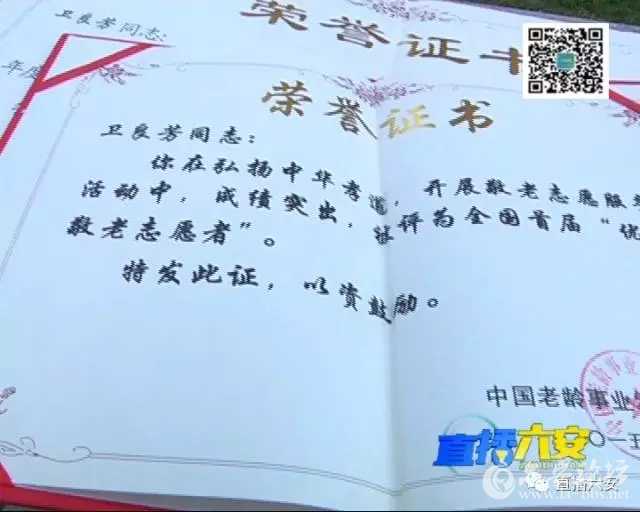 卫良芳同志:
荣誉证书
年度
荣誉证书
卫良芳同志:
你在弘扬中华孝道，开展敬老志愿服
活动中，成绩突出，被评为全国首届“优
敬老志愿者”。
特发此证，以资鼓励。
中国老龄事业
〇一五
直播六安
直播六安